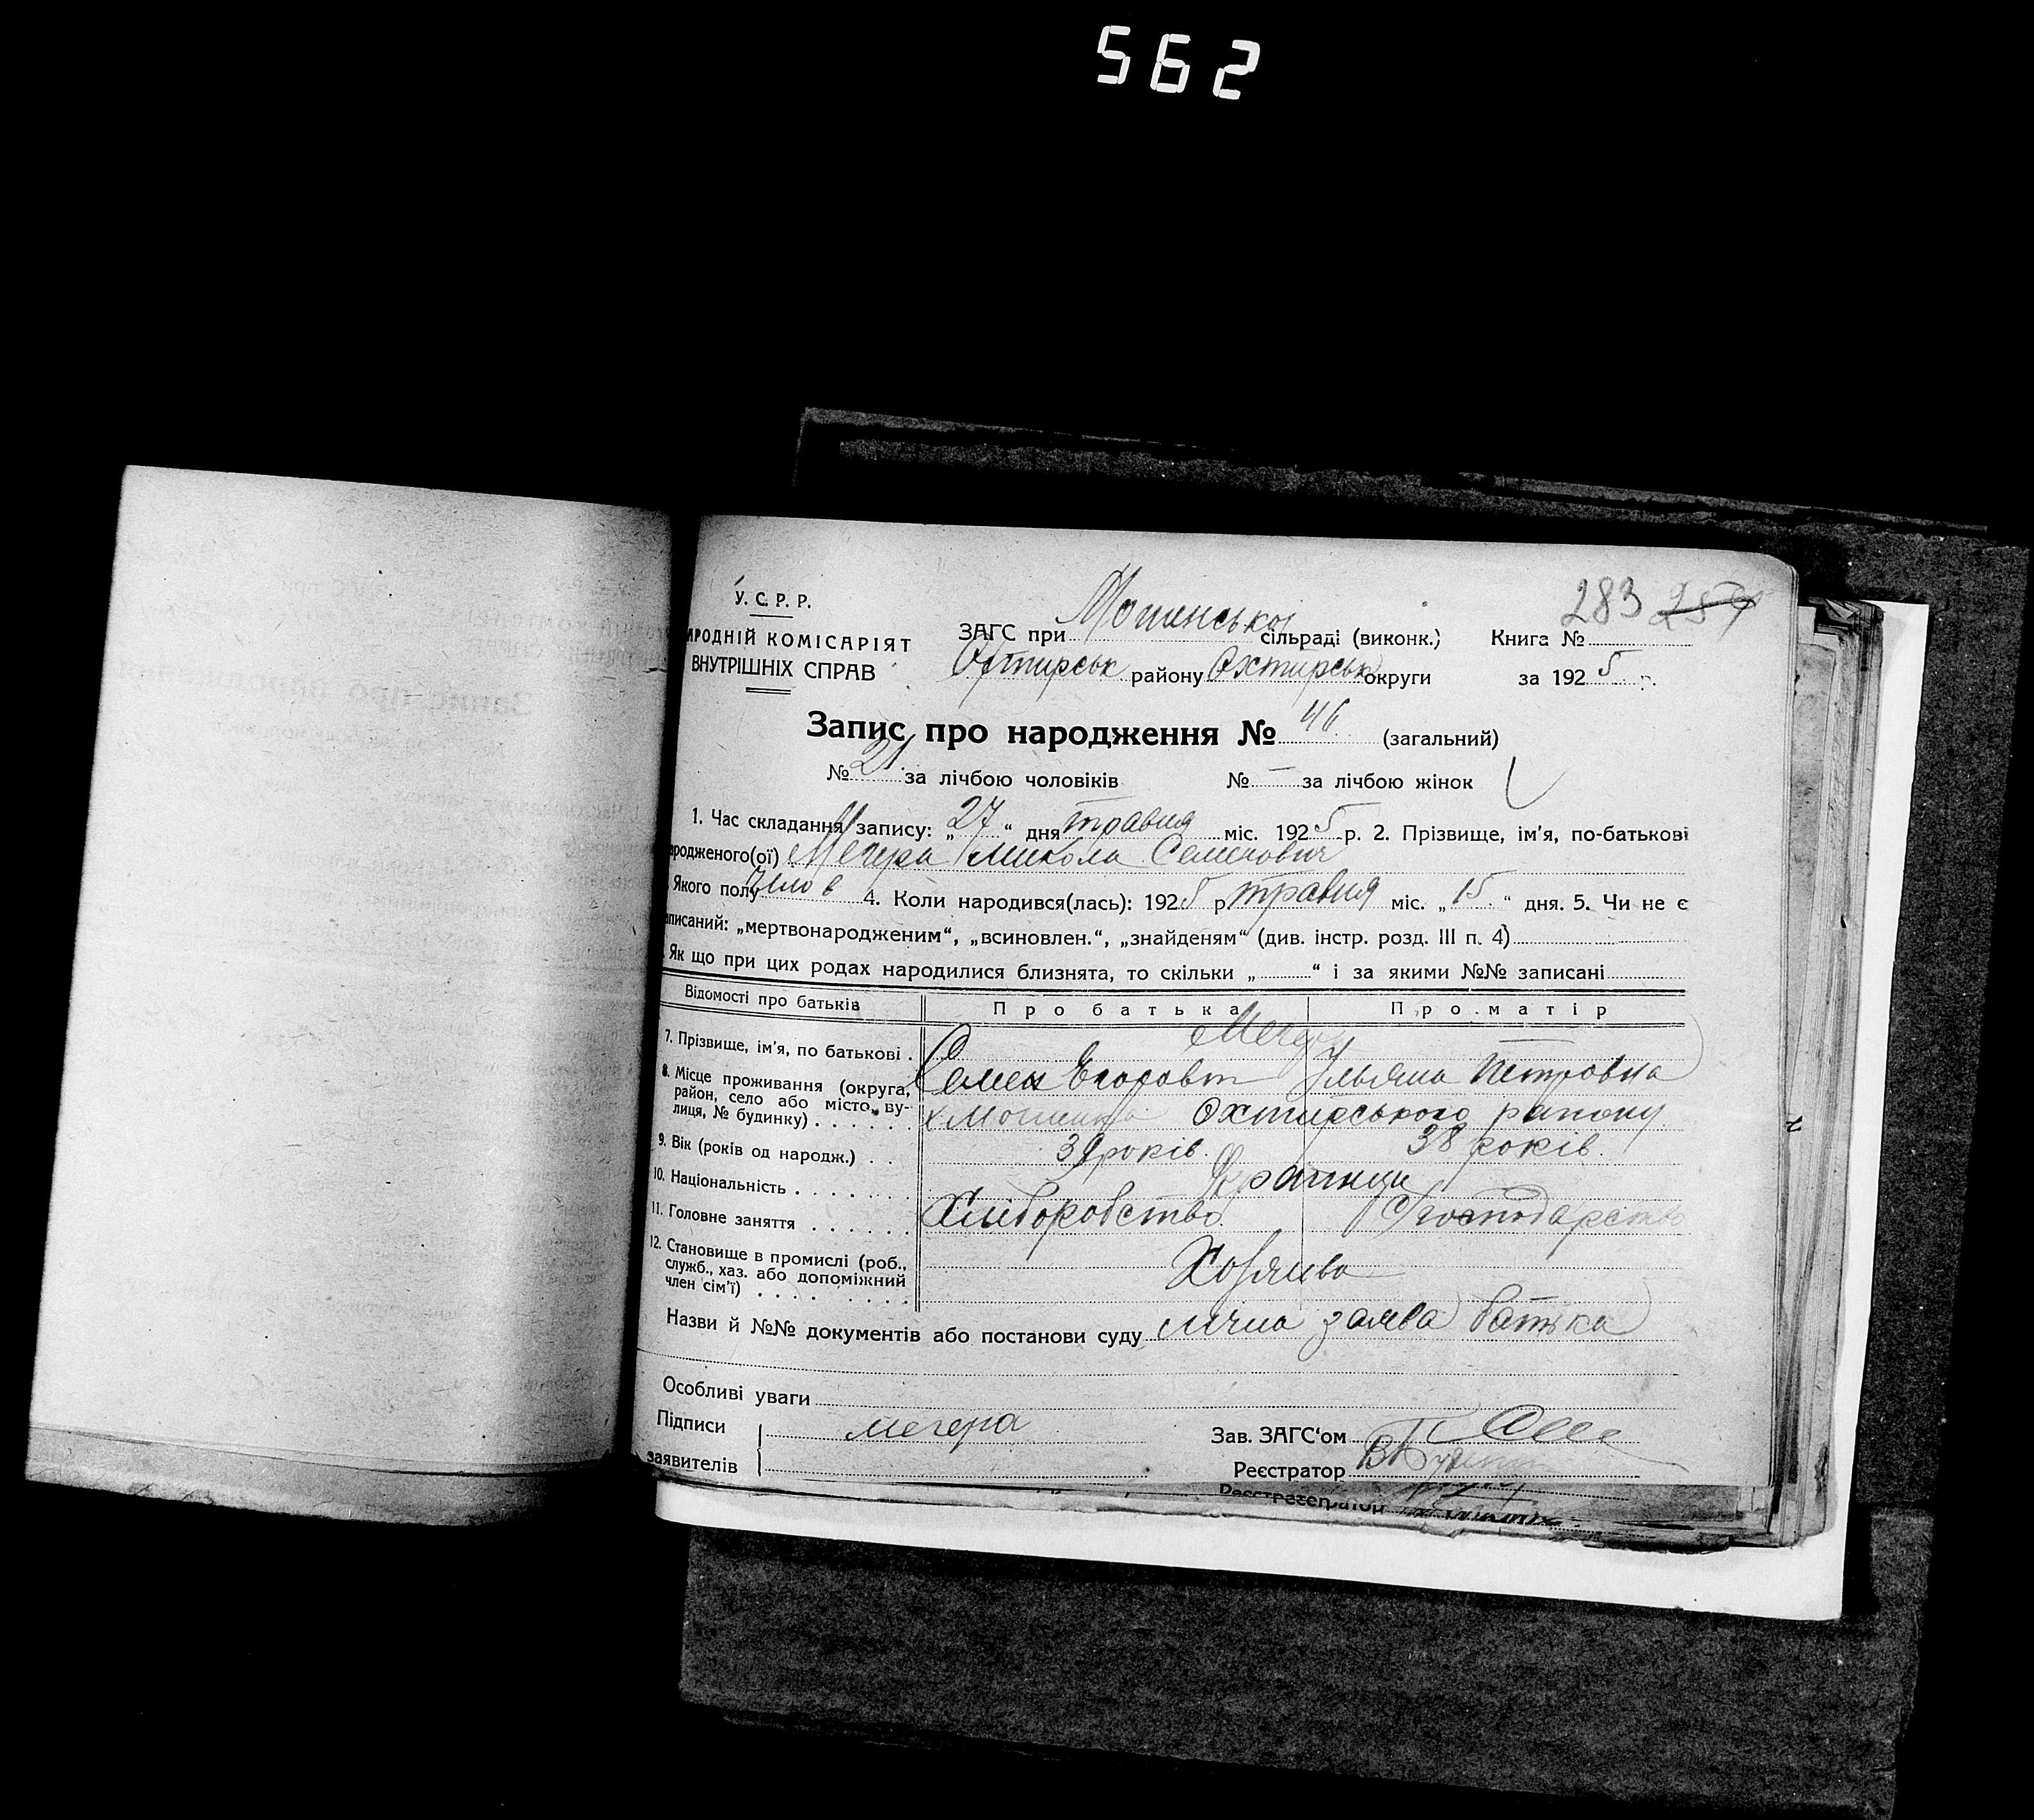 562
283 259
У. С. Р. Р.
НАРОДНІЙ КОМІСАРІЯТ
ВНУТРІШНІХ СПРАВ
ЗАГС при Мошенської сільраді (виконк.) Книга №
Охтирськ району Охтирськ округи за 1925 р.
Запис про народження № 46 (загальний)
№ 21 за лічбою чоловіків № — за лічбою жінок
1. Час складання запису: „27“ дня травня міс. 1925 р. 2. Прізвище, ім'я, по-батькові
народженого(ої) Мегера Микола Семенович
Якого полу челов 4. Коли народився(лась): 1925 р травня міс. „15“ дня. 5. Чи не є
записаний: „мертвонародженим“, „всиновлен.“, „знайденям“ (див. інстр. розд. III п. 4)
Як що при цих родах народилися близнята, то скільки „ “ і за якими №№ записані
Відомості про батьків Про батька Про матір
7. Прізвище, ім'я, по батькові . Мегера
Семен Егоровт Ульяна Петровна
8. Місце проживання (округа, район, село або місто, вулиця, № будинку) . . . . . . х Мошенка Охтирського району
9. Вік (років од народж.) . . 39 років. 38 років.
10. Національність . . . . . . . . Українци
11. Головне заняття . . . . . Хліборобство. С/господарство
12. Становище в промислі (роб., служб., хаз. або допоміжний член сім'ї) . . . . . . . . Хозяива
Назви й №№ документів або постанови суду лична заява батька
Особливі уваги
Підписи мегера Зав. ЗАГС'ом
заявителів Реєстратор